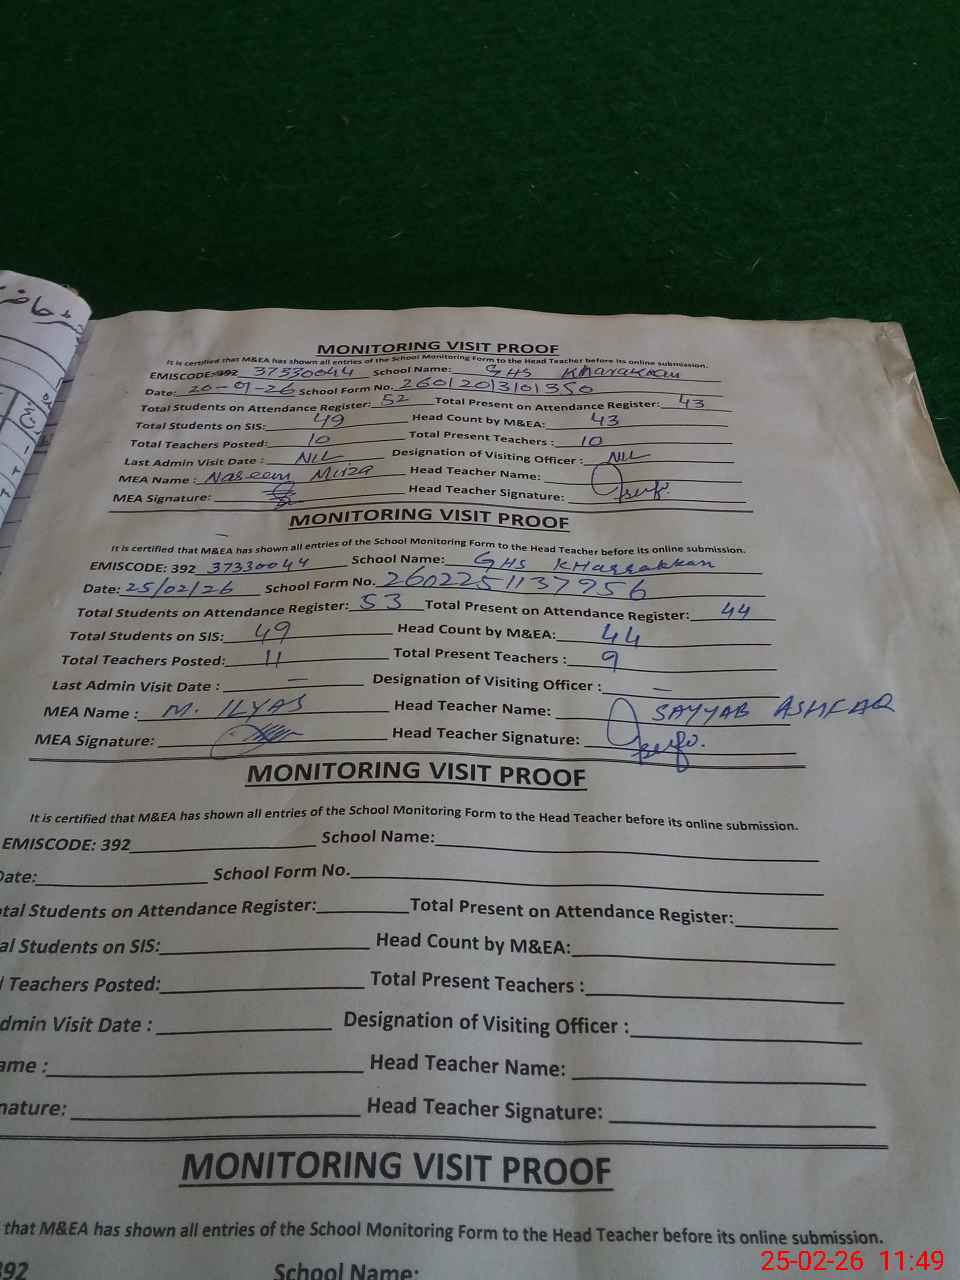 حاضر
MONITORING VISIT PROOF
It is certified that M&EA has shown all entries of the School Monitoring Form to the Head Teacher before its online submission.
EMISCODE: 392 37330044 School Name: GHS Kharakkan
Date: 20-01-26 School Form No. 2601203101350
Total Students on Attendance Register: 52 Total Present on Attendance Register: 43
Total Students on SIS: 49 Head Count by M&EA: 43
Total Teachers Posted: 10 Total Present Teachers : 10
Last Admin Visit Date : NIL Designation of Visiting Officer : NIL
MEA Name : Naseem Mirza Head Teacher Name:
MEA Signature: Head Teacher Signature:
MONITORING VISIT PROOF
It is certified that M&EA has shown all entries of the School Monitoring Form to the Head Teacher before its online submission.
EMISCODE: 392 37330044 School Name: GHS KHarrakkan
Date: 25/02/26 School Form No. 2602251137956
Total Students on Attendance Register: 53 Total Present on Attendance Register: 44
Total Students on SIS: 49 Head Count by M&EA: 44
Total Teachers Posted: 11 Total Present Teachers : 9
Last Admin Visit Date : — Designation of Visiting Officer : —
MEA Name : M. ILYAS Head Teacher Name: SAYYAB ASHFAQ
MEA Signature: Head Teacher Signature:
MONITORING VISIT PROOF
It is certified that M&EA has shown all entries of the School Monitoring Form to the Head Teacher before its online submission.
EMISCODE: 392 School Name:
Date: School Form No.
tal Students on Attendance Register: Total Present on Attendance Register:
al Students on SIS: Head Count by M&EA:
l Teachers Posted: Total Present Teachers :
dmin Visit Date : Designation of Visiting Officer :
ame : Head Teacher Name:
nature: Head Teacher Signature:
MONITORING VISIT PROOF
that M&EA has shown all entries of the School Monitoring Form to the Head Teacher before its online submission.
392 School Name:
25-02-26 11:49